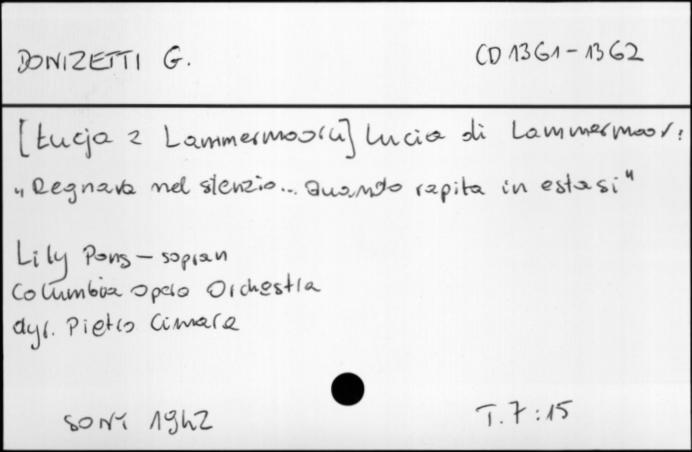 DONIZETTI G. CD 1361-1362
[Łucja z Lammermooru] Lucia di Lammermoor:
„Regnava nel silenzio... Quando rapita in estasi"
Lily Pons - sopran
Columbia Opera Orchestra
dyr. Pietro Cimara
SONY 1942 T. 7:15